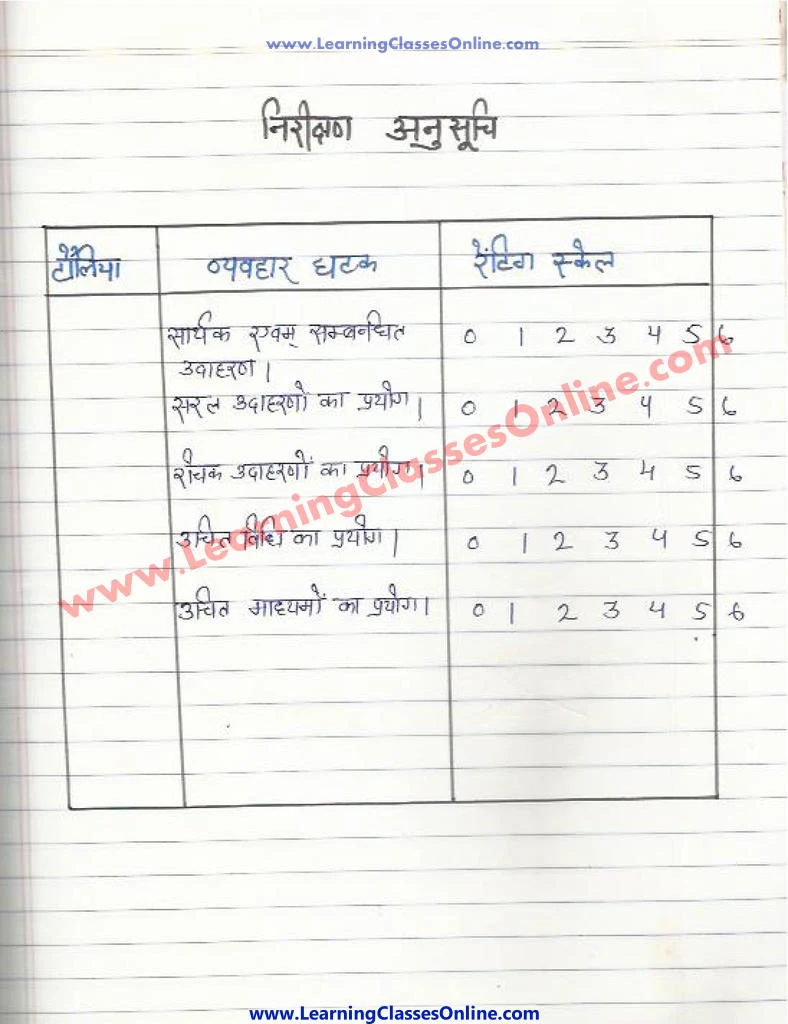 www.LearningClassesOnline.com
निरीक्षण अनुसूचि
टैलिया व्यवहार घटक रेंटिग स्केल
सार्थक एवम् सम्बन्धित 0 1 2 3 4 5 6
उदाहरण।
सरल उदाहरणो का प्रयोग। 0 1 2 3 4 5 6
रोचक उदाहरणों का प्रयोग। 0 1 2 3 4 5 6
उचित विधि का प्रयोग। 0 1 2 3 4 5 6
उचित माध्यमों का प्रयोग। 0 1 2 3 4 5 6
www.LearningClassesOnline.com
www.LearningClassesOnline.com